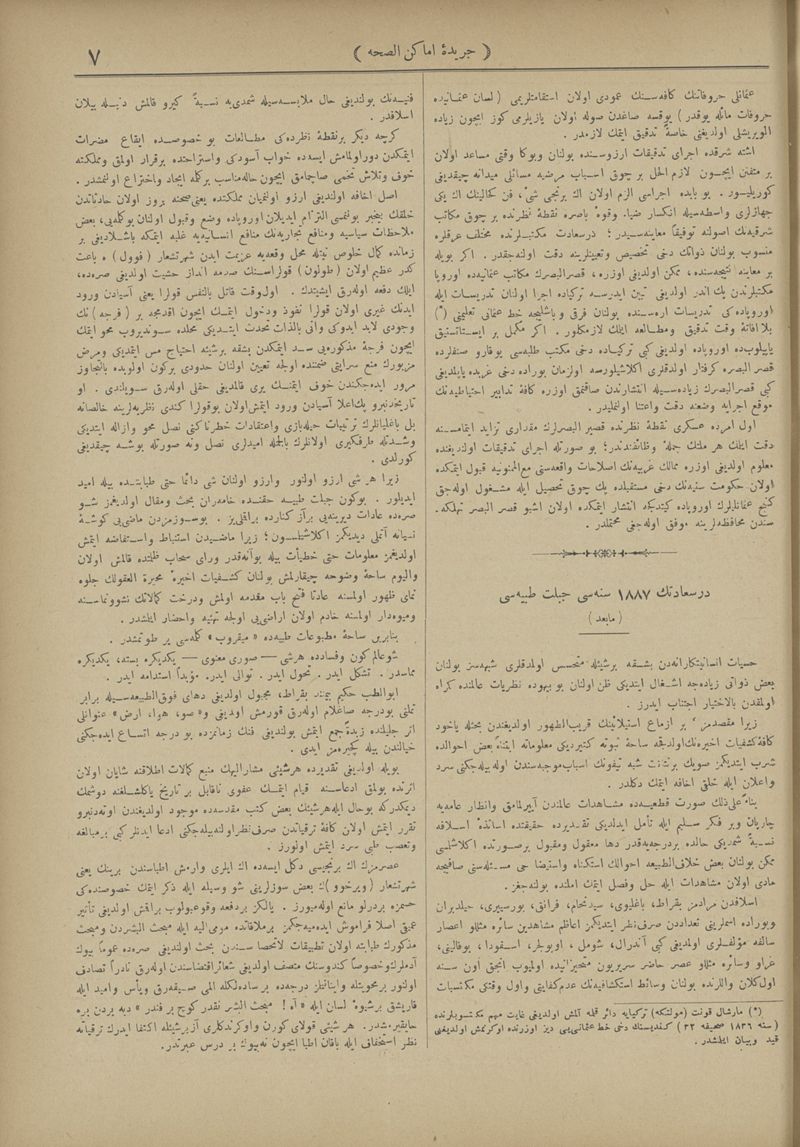 ( جریدهٔ اماکن الصحه )
٧
عثمانلی حروفاتنك كافه‌سنك عمودی اولان استقامتلریمی ( لسان عثمانیده
حروفات مائله یوقدر ) یوقسه صاغدن صوله اولان یازیلرمی كوز ایچون زیاده
الویریشلی اولدیغنی خاصةً تدقیق ایتمك لازمدر .
ایشته شرقده اجرای تدقیقات ارزوسنده بولنان وبوكا وقتی مساعد اولان
بر متفنن ایچون لازم الحل بر چوق اسباب مرضیه مسائلی میدانه چیقدیغی
كوریلیور . بو بابده اجراسی الزم اولان اك برنجی شی، فن كحالینك اك یكی
جهازلری واسطه‌سیله انكسار ضیاء وقوهٔ باصره نقطهٔ نظرنده بر چوق مكاتب
شرقیه‌نك اصولنه توفیقاً معاینه‌سیدر ؛ درسعادت مكتبلرنده مختلف عرقلره
منسوب بولنان ذواتك دخی تخصیص وتعیینلرینه دقت اولنه‌جقدر . اكر بویله
بر معاینه نتیجه‌سنده، ممكن اولدیغی اوزره، قصرالبصرك مكاتب عثمانیه‌ده اوروپا
مكتبلرندن پك اندر اولدیغی تبین ایدرسه تركیاده اجرا اولنان تدریسات ایله
اوروپاده‌كی تدریسات اره‌سنده بولنان فرق وباشلیجه خط عثمانی تعلیمنی (*)
بلا افاتهٔ وقت تدقیق ومطالعه ایلك لازمكلور . اكر مكمل بر ایستاتستیق
یاپیلوبده اوروپاده اولدیغی كبی تركیاده دخی مكتب طلبه‌سی یوقارو صنفلرده
قصر البصره كرفتار اولدقلری اكلاشیلورسه اولزمان بوراده دخی غربده یاپلدیغی
كبی قصرالبصرك زیاده‌سیله انتشارندن صاقنمق اوزره كافهٔ تدابیر احتیاطیه‌نك
موقع اجرایه وضعنه دقت واعتنا اولنملیدر .
اول امرده عسكری نقطهٔ نظرنده قصیر البصرلرك مقداری تزاید ایتمامسنه
دقت ایلك هر ملتك جملهٔ وظائفندندر؛ بو صورتله اجرای تدقیقات اولندیغنده
معلوم اولدیغی اوزره ممالك غربیه‌نك اصلاحات واقعه‌سنی مع‌الممنونیه قبول ایتمكده
اولان حكومت سنیه‌نك دخی مستقبلده پك چوق تحصیل ایله مشغول اوله‌جق
كنج عثمانلیلرك اوروپاده كیتدكجه انتشار ایتمكده اولان اشبو قصر البصر تهلكه‌
سندن محافظه‌لرینه موفق اوله‌جغی محتملدر .
درسعادتك ١٨٨٧ سنه‌سی جبلت طبیه‌سی
( مابعد )
حسیات انسانیتكارانه‌دن بشقه برشیئله متحسس اولمدقلری شبهه‌سز بولنان
بعض ذواتی زیاده‌جه اشغال ایتدیكی ظن اولنان بو بیهوده نظریات عالمنده كراه
اولمقدن بالاختیار اجتناب ایدرز .
زیرا مقصدمز ، بر ازماع استیلانینك قریب‌الظهور اولدیغندن بحثله یاخود
كافهٔ كشفیات اخیره‌نك اولدقجه ساحهٔ ثبوته كتیردیكی معلوماته ابتناءً بعض احوالده
شرب ایتدیكمز صویك برشدتلی شبه تیفونك اسباب موجبه‌سندن اوله‌بیله‌جكنی سرد
واعلان ایله خلقی اخافه ایتمك دكلدر .
بناءً علی ذلك صورت قطعیه‌ده مشاهدات عالمندن آیرلمامق وانظار عامه‌یه
چارپان وبر فكر سلیم ایله تأمل ایدلدیكی تقدیرده حقیقتده اساتذهٔ اسلافه
نسبةً شمدیكی حالده بردرجه‌یه‌قدر دها معقول ومقبول برصورتده اكلاشلمسی
ممكن بولنان بعض خلاف‌الطبیعه احوالك استكناه واستیضاحی مسئله‌سنی صافیجه
مادی اولان مشاهدات ایله حل وفصل ایتمك املنده بولنه‌جغز .
اسلافدن مرادمز بقراط، باغلیوی، سیدنهام، فرانق، بورسییری، حیلدبران
وبوراده اسملرینی تعداددن صرف‌نظر ایتدیكمز اعاظم مشاهدین سائره مثللو اعصار
سالفه مؤلفلری اولدیغی كبی آندرال، شومل ، اوبولجر، اسقودا، بوفالینی،
غراو وسائره مثللو عصر حاضر سریریون متحیزانیده اولمیوب آنجق اون سنه
اول‌كلان واللرنده بولنان وسائط استكشافیه‌نك عدم كفایتی واول وقتكی مكتسبات
(*) مارشال قونت (مولتكه) تركیایه دائر قلمه آلمش اولدیغی غایت مهم مكتوبلرنده
( سنه ١٨٣٦ صحیفه ٢٢ ) كندیسنك دخی خط عثمانی‌یی دیز اوزرنده اوكرنمش اولدیغنی
قید وبیان ایلمشدر .
فنیه‌نك بولندیغی حال ملابسه‌سیله شمدی‌یه نسبةً كیرو قالمش دنیله بیلان
اسلافدر .
كرچه دیگر برنقطهٔ نظرده‌كی مطالعات بو خصوصده ایقاع مضرات
ایتمكدن دور اولمامش ایسه‌ده خواب آسودكی واستراحتده برقرار اولمق ومملكته
خوف وتلاش تخمی صاچمامق ایچون حاله‌مناسب بركله ایجاد واختراع اولنمشدر .
اصل اخافه اولندیغی ارزو اولنمیان مملكتده یعنی‌صحنه بروز اولان حادثاتدن
خلقك بیخبر بولنمسی التزام ایدیلان اوروپاده وضع وقبول اولنان بوكله‌یی، بعض
ملاحظات سیاسیه ومنافع تجاریه‌نك منافع انسانیه‌یه غلبه ایتمكه باشلادیغی بر
زمانده كمال خلوص نیتله محل وقعه‌یه عزیمت ایدن شهرتشعار ( فوول ) ه باعث
كدر عظیم اولان ( طولون ) قولراسنك صدمه انداز حشیت اولدیغی صره‌ده،
ایلك دفعه اوله‌رق ایشیتدك . اول‌وقت قاتل بالنفس قولرا یعنی آسیادن ورود
ایدنك غیری اولان قولرا نفوذ ودخول ایتمك ایچون اقدیجه بر ( فرجه ) نك
وجودی لابد ایدوكی وانی بالذات تحدث ایتدیكی محلده سوندیروب محو ایتمك
ایچون فرجهٔ مذكوره‌یی سد ایتمكدن بشقه برشیئه احتیاج مس ایتمدیكی ومرض
مزبورك منع سرایتی ضمننده اولجه تعیین اولنان حدودی بركون اولوبده بالتجاوز
مرور ایده‌جكندن خوف ایتمك یری قالمدیغی حقلی اوله‌رق سویلندی . او
تاریخدنبرو پك‌اعلا آسیادن ورود ایتمش‌اولان بوقولرا كندی نظریه‌لرینه خالصانه
بل باغلیانلرك ترتیبات حیله‌بازی واعتقادات خطرناكنی نصل محو وازاله ایتدیكی
وشدتله طرفكیری اولانلرك بالجله امیدلری نصل ونه صورتله بوشه چیقدیغی
كورلدی .
زیرا هر شی ارزو اولنور وارزو اولنان شی دائما حتی طبابتده بیله امید
ایدیلور . بوكون جبلت طبیه حقنده خامه‌ران بحث ومقال اولدیغمز شو
صره‌ده عادات دیرینه‌یی برآز كنارده براقملی‌یز . بوسوزمزدن ماضی‌یی كوشهٔ
نسیانه آتملی دیدیكمز اكلاشلمسون ؛ زیرا ماضیدن استنباط واستفاضه ایتمش
اولدیغمز معلومات حتی خطیأت بیله بوآنه‌قدر ورای سحاب ظلمتده قالمش اولان
والیوم ساحهٔ وضوحه چیقارلمش بولنان كشفیات اخیرهٔ محیرة العقولك جلوه
نمای ظهور اولمسنه عادتا فتح باب مقدمه اولمش ودرخت كمالاتك نشوونماسنه
ومیوه‌دار اولمسنه خادم اولان اراضی‌یی اولجه تهیئه واحضار ایلمشدر .
بنابرین ساحهٔ مطبوعات طبیه‌ده « میقروب » كله‌سی یر طوتمشدر .
شوعالم كون وفسادده هرشی — صوری معنوی — یكدیكره بسته، یكدیكره
مماسدر . تشكل ایدر . تحول ایدر . توالی ایدر. مؤبداً استدامه ایدر .
ابوالطب حكیم بیمند بقراط، مجبول اولدیغی دهای فوق‌الطبیعه‌سیله برابر
تملنی بودرجه صاغلام اوله‌رق قورمش اولدیغی و«صو، هوا، ارض» عنوانلی
اثر جلیلنده زبدهً جمع ایتمش بولندیغی فنك زمانمزده بو درجه اتساع ایده‌جكنی
خیالندن بیله كچیره‌من ایدی .
بویله اولدیغی تقدیرده هرشیئی مشارالیهك منبع كمالات اطلاقنه شایان اولان
اثرنده بولمق ادعاسنه قیام ایتمك عفوی ناقابل بر تاریخ یاكلشلغنه دوشمك
دیمكدركه بوحال ایله هرشیئك بعض كتب مقدسه‌ده موجود اولدیغندن اوته‌دنبرو
تقرر ایتمش اولان كافهٔ ترقیاتدن صرف‌نظر اولنه‌بیله‌جكنی ادعا ایدنلر كبی برمبالغه
وتعصب طبی سرد ایتمش اولورز .
عصرمزك اك برنجیسی دكل ایسه‌ده اك ایلری وارمش اطباسندن برینك یعنی
شهرتشعار ( ویرخوو ) ك بعض سوزلرینی شو وسیله ایله ذكر ایتمك خصوصنده‌كی
حسمزه بردرلو مانع اوله‌میورز . یالكز بردفعه وقوعبولوب براقمش اولدیغی تأثیر
عمیق اصلا فراموش ایده‌میه‌جكمز برملاقاتده مری الیه ایله مبحث البشردن ومبحث
مذكورك طبابته اولان تطبیقات لاتحصاسندن بحث اولندیغی صره‌ده عموماً بیوك
آدملرك وخصوصاً كندوسنك متصف اولدیغی شعائر اقتضاسندن اوله‌رق نادراً تصادف
اولنور برمحویتله واینانلمز درجه‌ده بر ساده‌لكله المی صیقه‌رق ویأس وامید ایله
قاریشق برشیوهٔ لسان ایله « آه ! مبحث البشر نقدر كوج بر فندر » دیه بردن بره
حایقیرمشدر. هر شیئی قولای كورن واوكرندكلری آز برشیئله اكتفا ایدرك ترقیاته
نظر استخفافی ایله باقان اطبا ایچون نه‌بیوك بر درس عبرتدر.